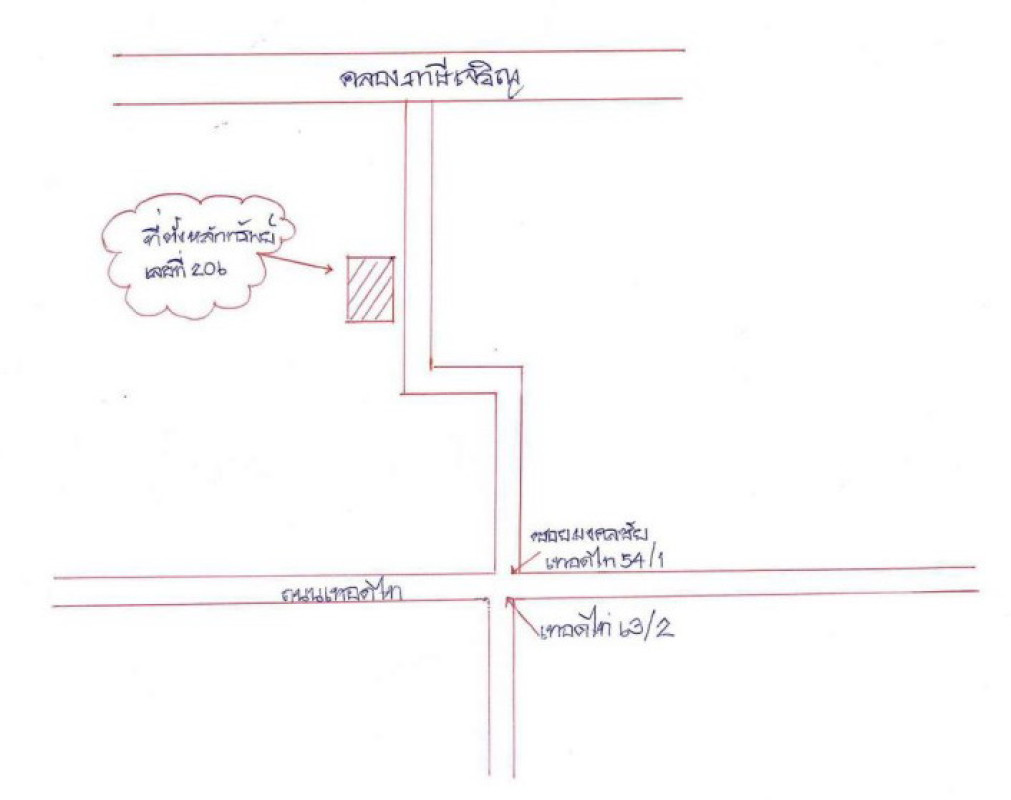 คลองภาษีเจริญ
ที่ตั้งหลักทรัพย์
เลขที่ 206
ซอยมงคลชัย
เทอดไท 54/1
ถนนเทอดไท
เทอดไท 63/2